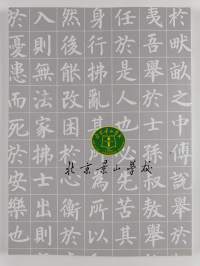 於畎畝之中傅說
夷吾舉於士孫叔敖舉
任於是人必先苦其
亂其所為所以
然後能改困於心衡於
入則無法家拂士出則
於憂患而死於安樂也
北京景山学校